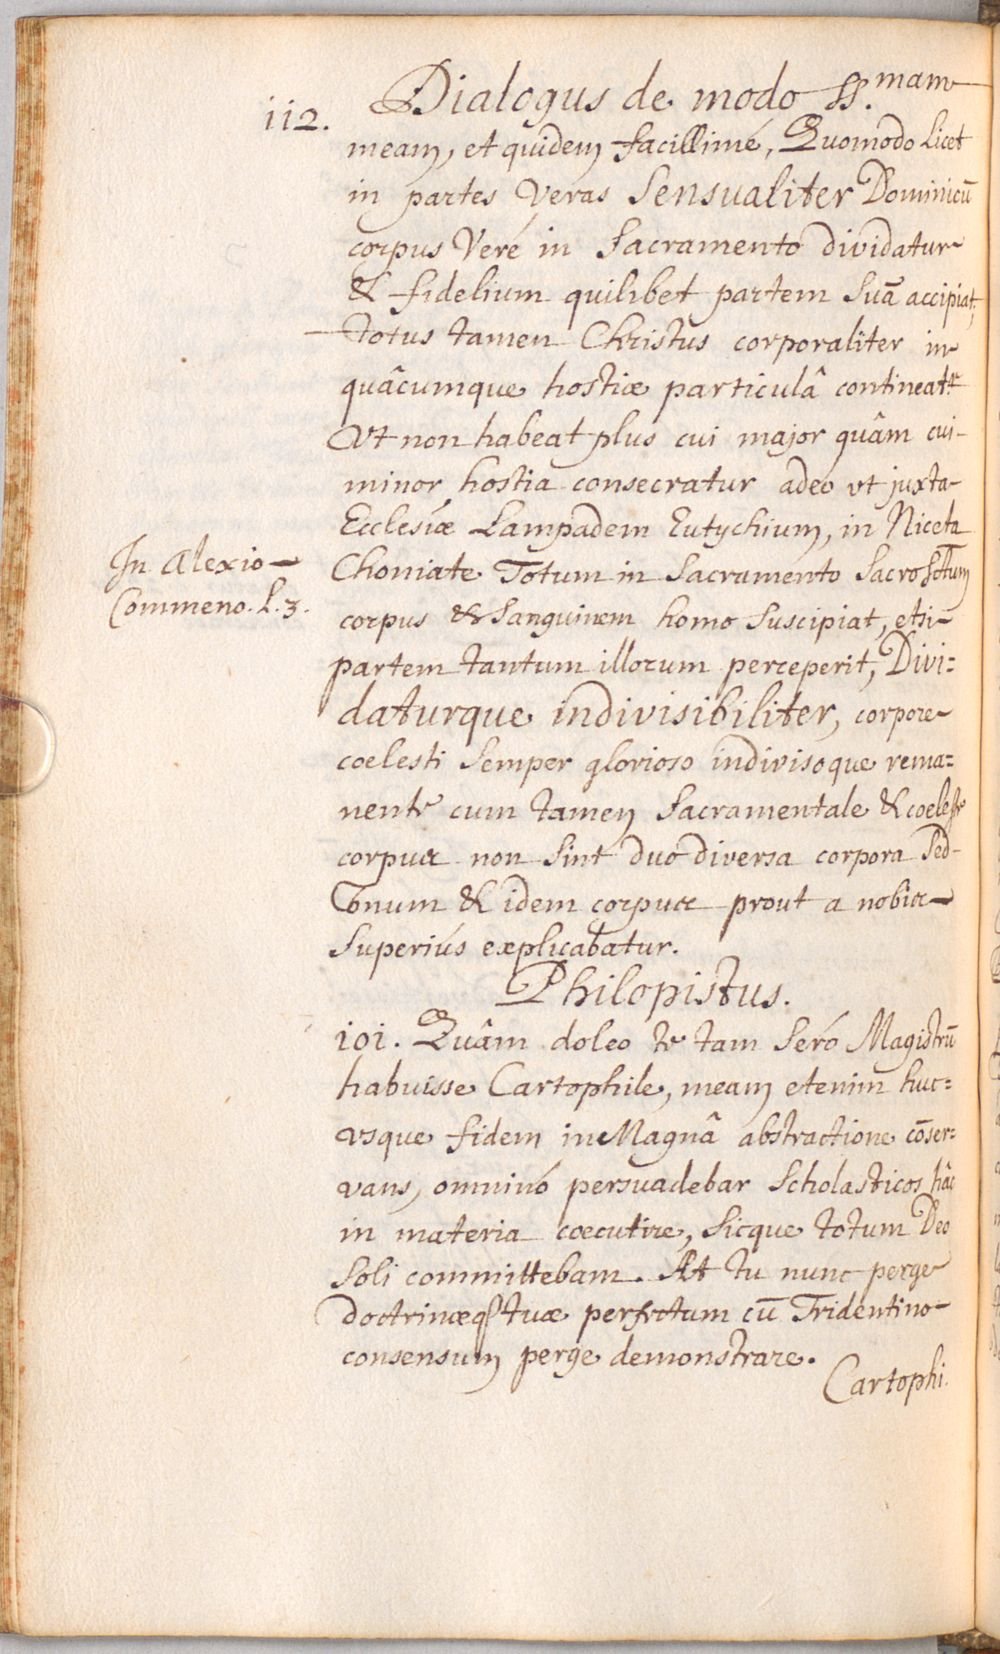 Dialogus de modo SS.mam
112.
meam, et quidem facillimé, Quomodo licet
in partes veras Sensualiter Dominicū
corpus Veré in Sacramento dividatur
& fidelium quilibet partem Suā accipiat,
totus tamen Christus corporaliter in
quâcumque hostiæ particulâ contineatr
Vt non habeat plus cui major quâm cui
minor hostia consecratur adeo vt juxta
Ecclesiæ Lampadem Eutychium, in Niceta
In Alexio
Choniate Totum in Sacramento Sacrosctum
Commeno. L. 3.
corpus & Sanguinem homo Suscipiat, etsi
partem tantum illorum perceperit, Divi=
daturque indivisibiliter, corpore
coelesti Semper glorioso indivisoque rema=
nente cum tamen Sacramentale & coeleste
corpus non Sint duo diversa corpora Sed
Vnum & idem corpus prout a nobis
Superiús explicabatur.
Philopistus.
101. Quâm doleo te tam Seró Magistrū
habuisse Cartophile, meam etenim huc=
vsque fidem in Magnâ abstractione cōser=
vans, omninó persuadebar Scholasticos hâc
in materia coecutire, Sicque totum Deo
Soli committebam. At tu nunc perge
doctrinæq tuæ perfectum cū Tridentino
consensum perge demonstrare.
Cartophi.